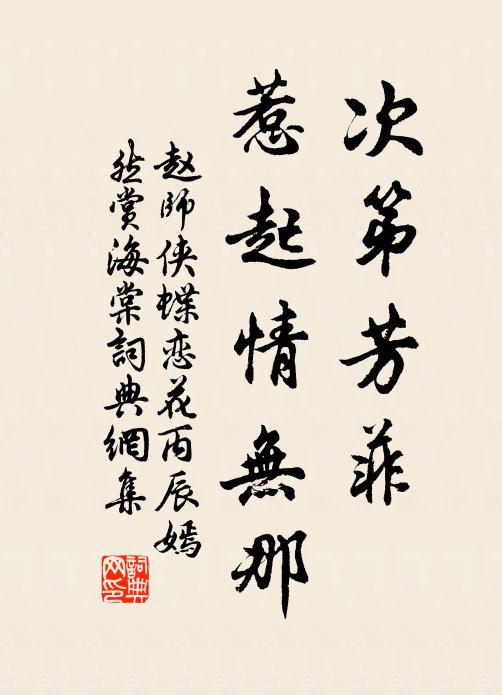 次第芳菲
惹起情無那
赵師侠蝶恋花丙辰嫣
然赏海棠詞典網集
詞典
网印